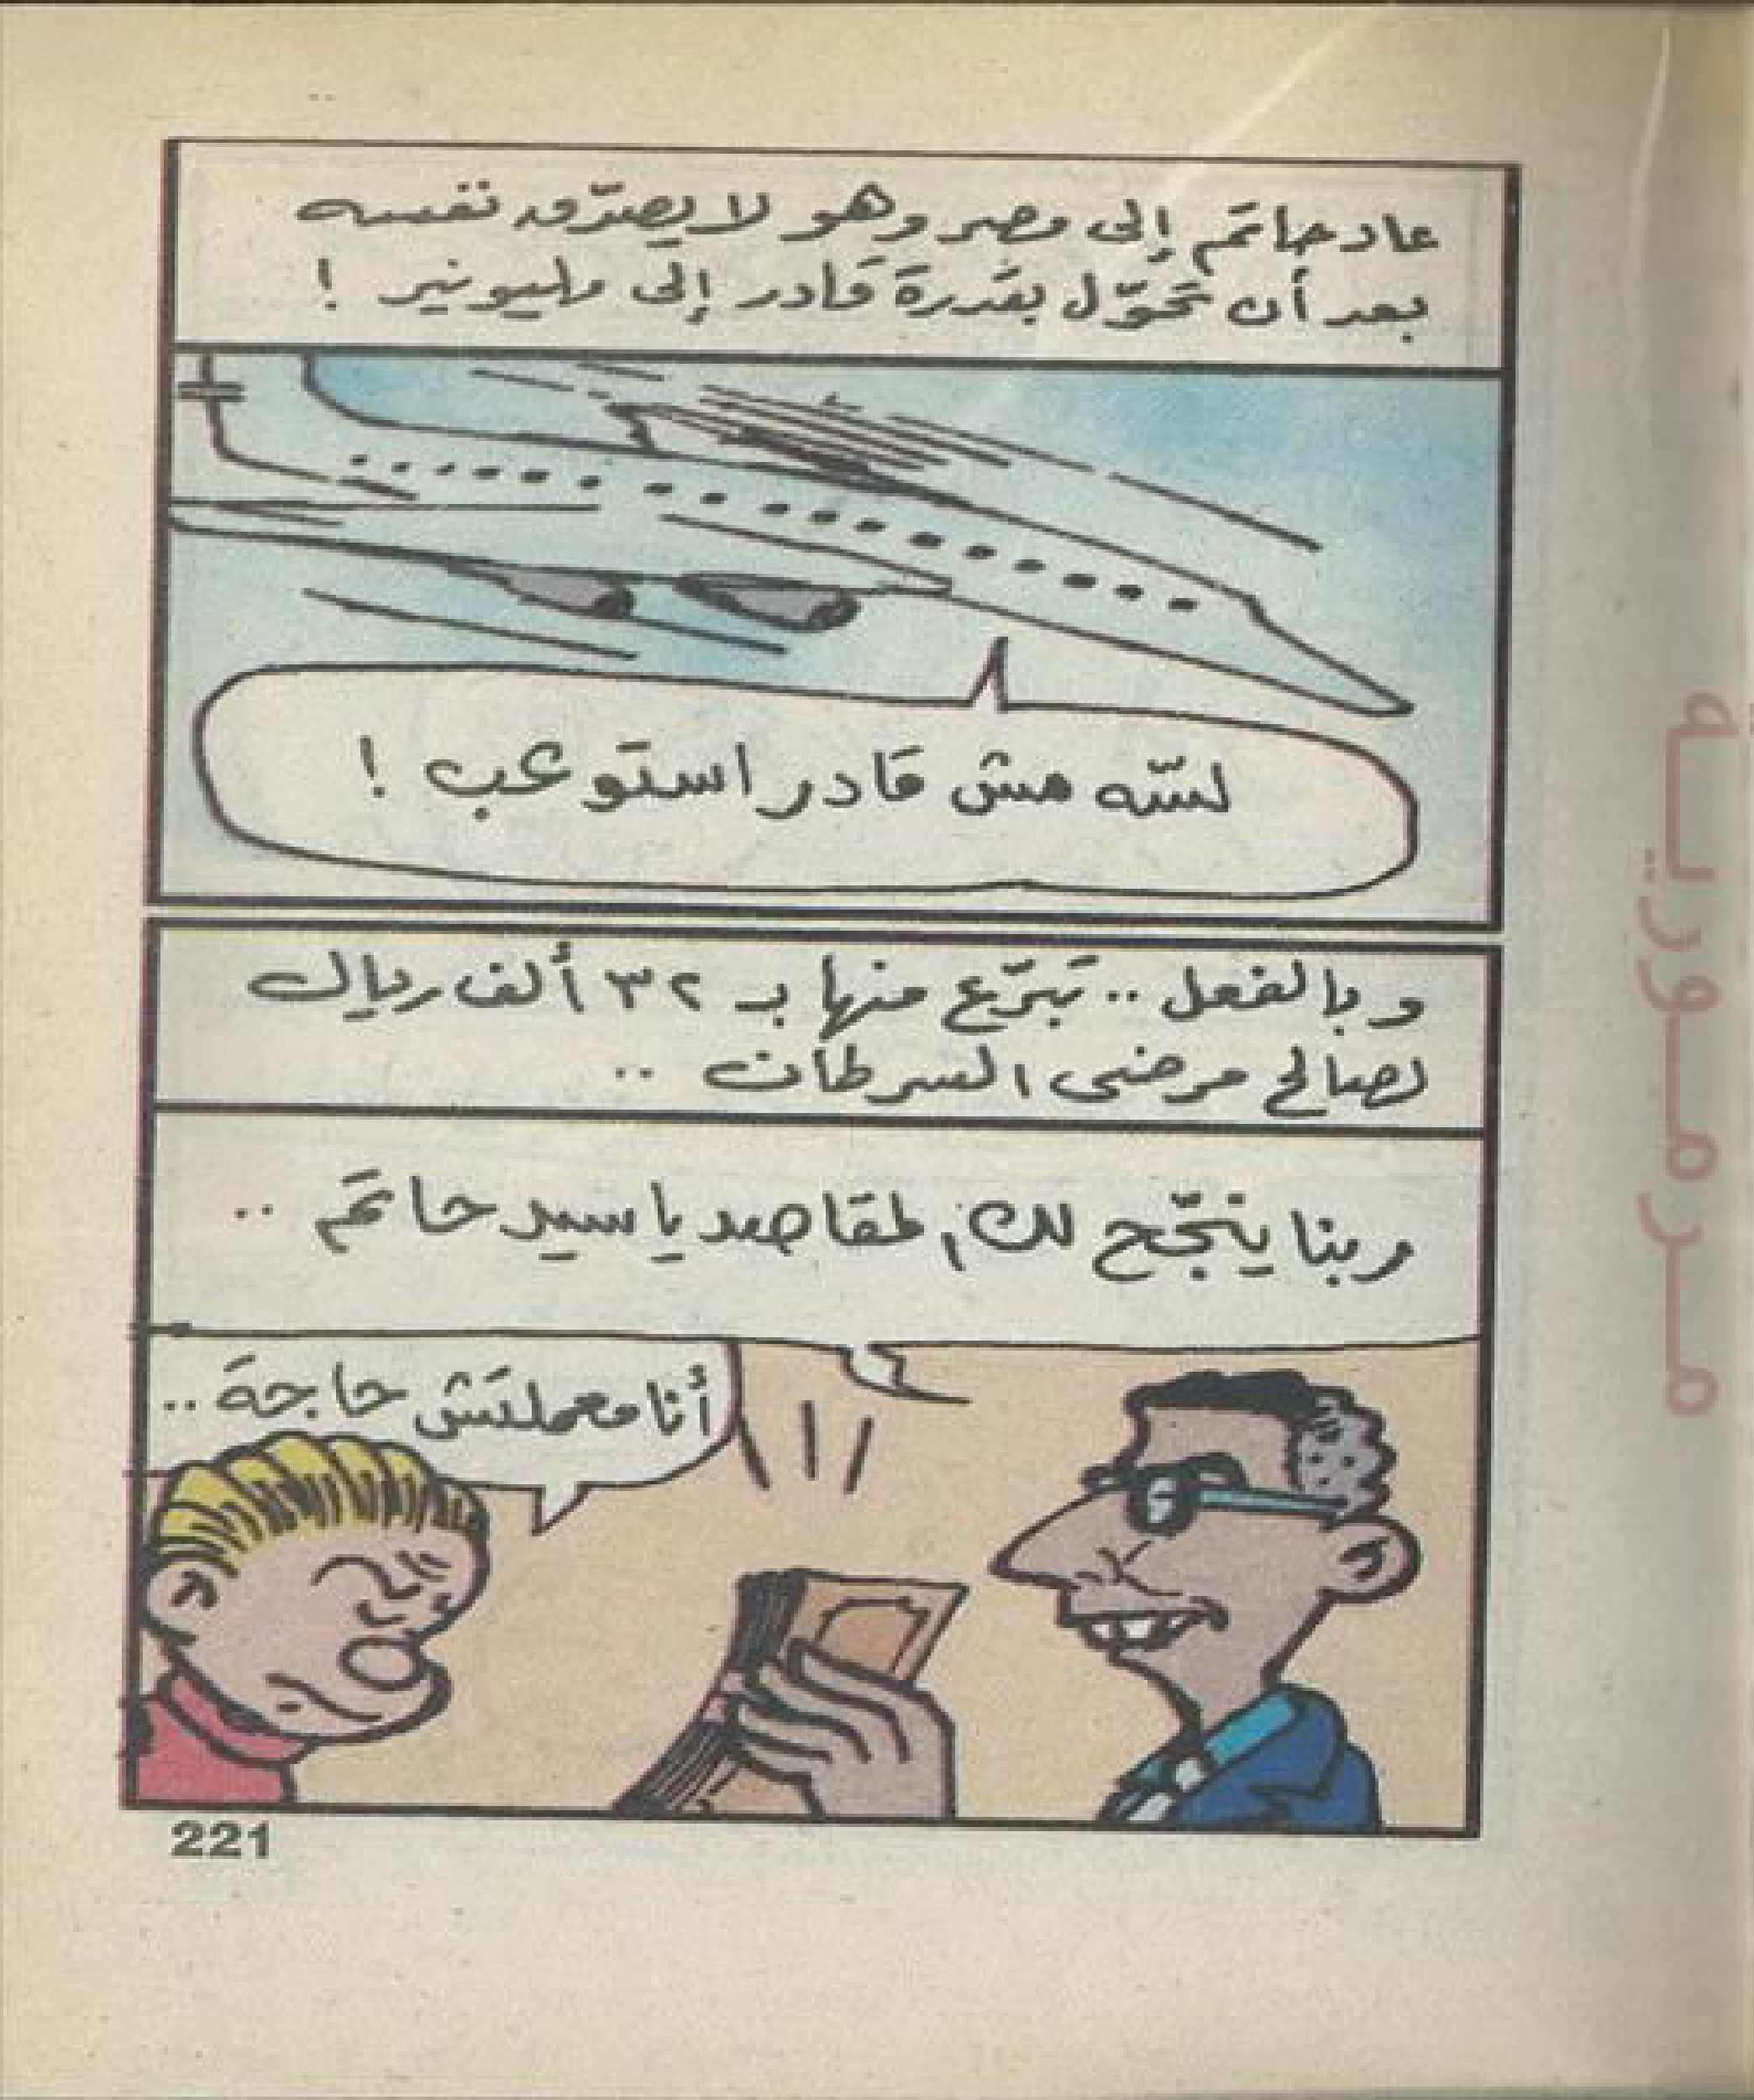 عاد حاتم إلى مصر وهو لا يصدّق نفسه
بعد أن تحوّل بقدرة قادر إلى مليونير !
لسّه مش قادر استوعب !
وبالفعل .. تبرّع منها بـ ٣٢ ألف ريال
لصالح مرضى السرطان ..
ربنا ينجّح لك المقاصد يا سيد حاتم ..
أنا معملتش حاجة ..
221
مرمورية